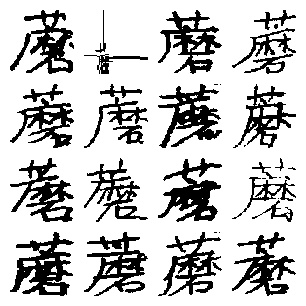 蘑蘑蘑蘑
蘑蘑蘑蘑
蘑蘑蘑蘑
蘑蘑蘑蘑